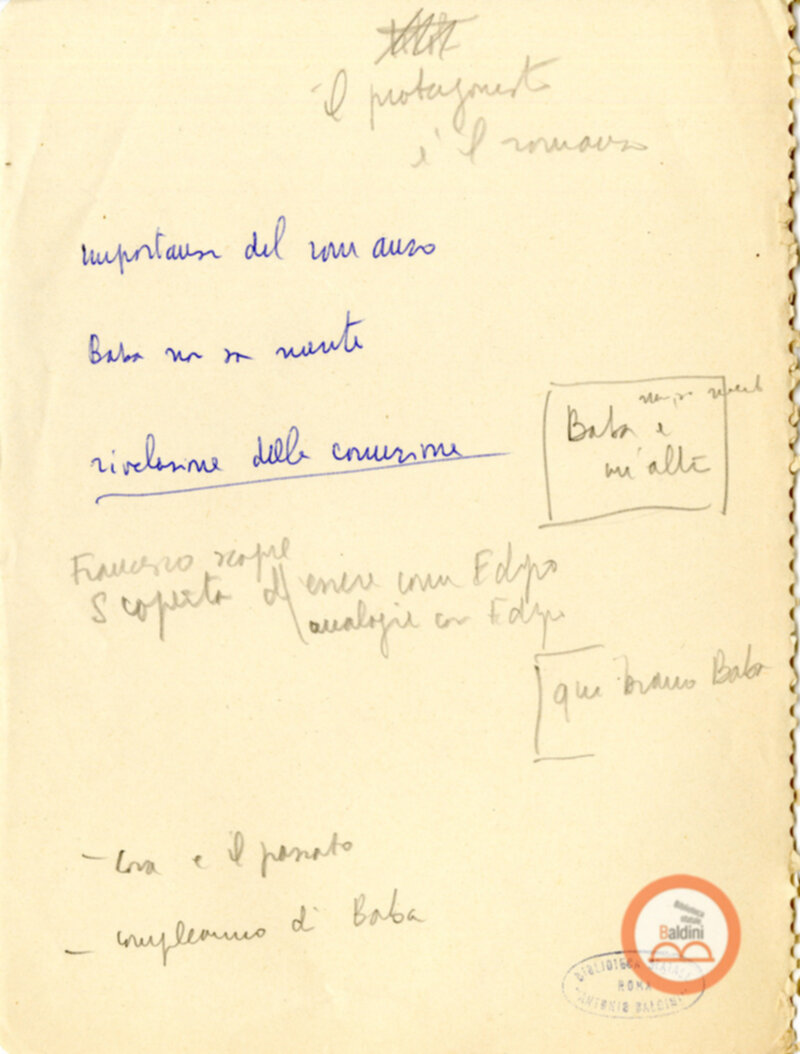 il protagonista
è il romanzo
importanza del romanzo
Baba non sa niente
rivelazione della corruzione
non sa niente
Baba è
un'altra
Francesco scopre
Scoperta di essere come Edipo
analogie con Edipo
qui brano Baba
- Cora e il passato
- compleanno di Baba
Biblioteca
statale
Baldini
BIBLIOTECA STATALE
ROMA
ANTONIO BALDINI